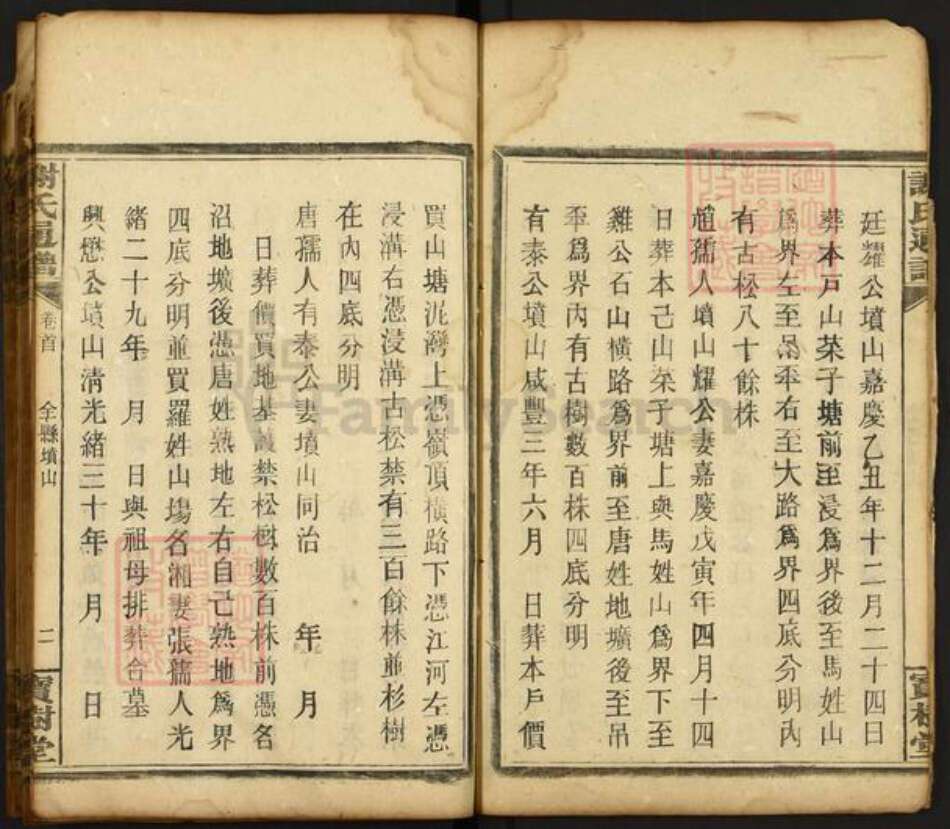 謝氏通譜
廷耀公墳山嘉慶乙丑年十二月二十四日
葬本戸山菜子塘前至浸爲界後至馬姓山
爲界左至吊坙右至大路爲界四底分明內
有古松八十餘株
趙孺人墳山耀公妻嘉慶戊寅年四月十四
日葬本己山菜子塘上與馬姓山爲界下至
雞公石山橫路爲界前至唐姓地壙後至吊
坙爲界內有古樹數百株四底分明
有泰公墳山咸豐三年六月　日葬本戸價
寶樹堂
買山塘泥灣上憑嶺頂橫路下憑江河左憑
浸溝右憑浸溝古松禁有三百餘株並杉樹
在內四底分明
唐孺人有泰公妻墳山同治　年　月
日葬價買地基護禁松樹數百株前憑名
沼地壙後憑唐姓熟地左右自己熟地爲界
四底分明並買羅姓山塲名湘妻張孺人光
緒二十九年　月　日與祖母排葬合墓
興懋公墳山清光緒三十年　月　日
謝氏通譜
卷首
全縣墳山
二
寶樹堂
FamilySearch